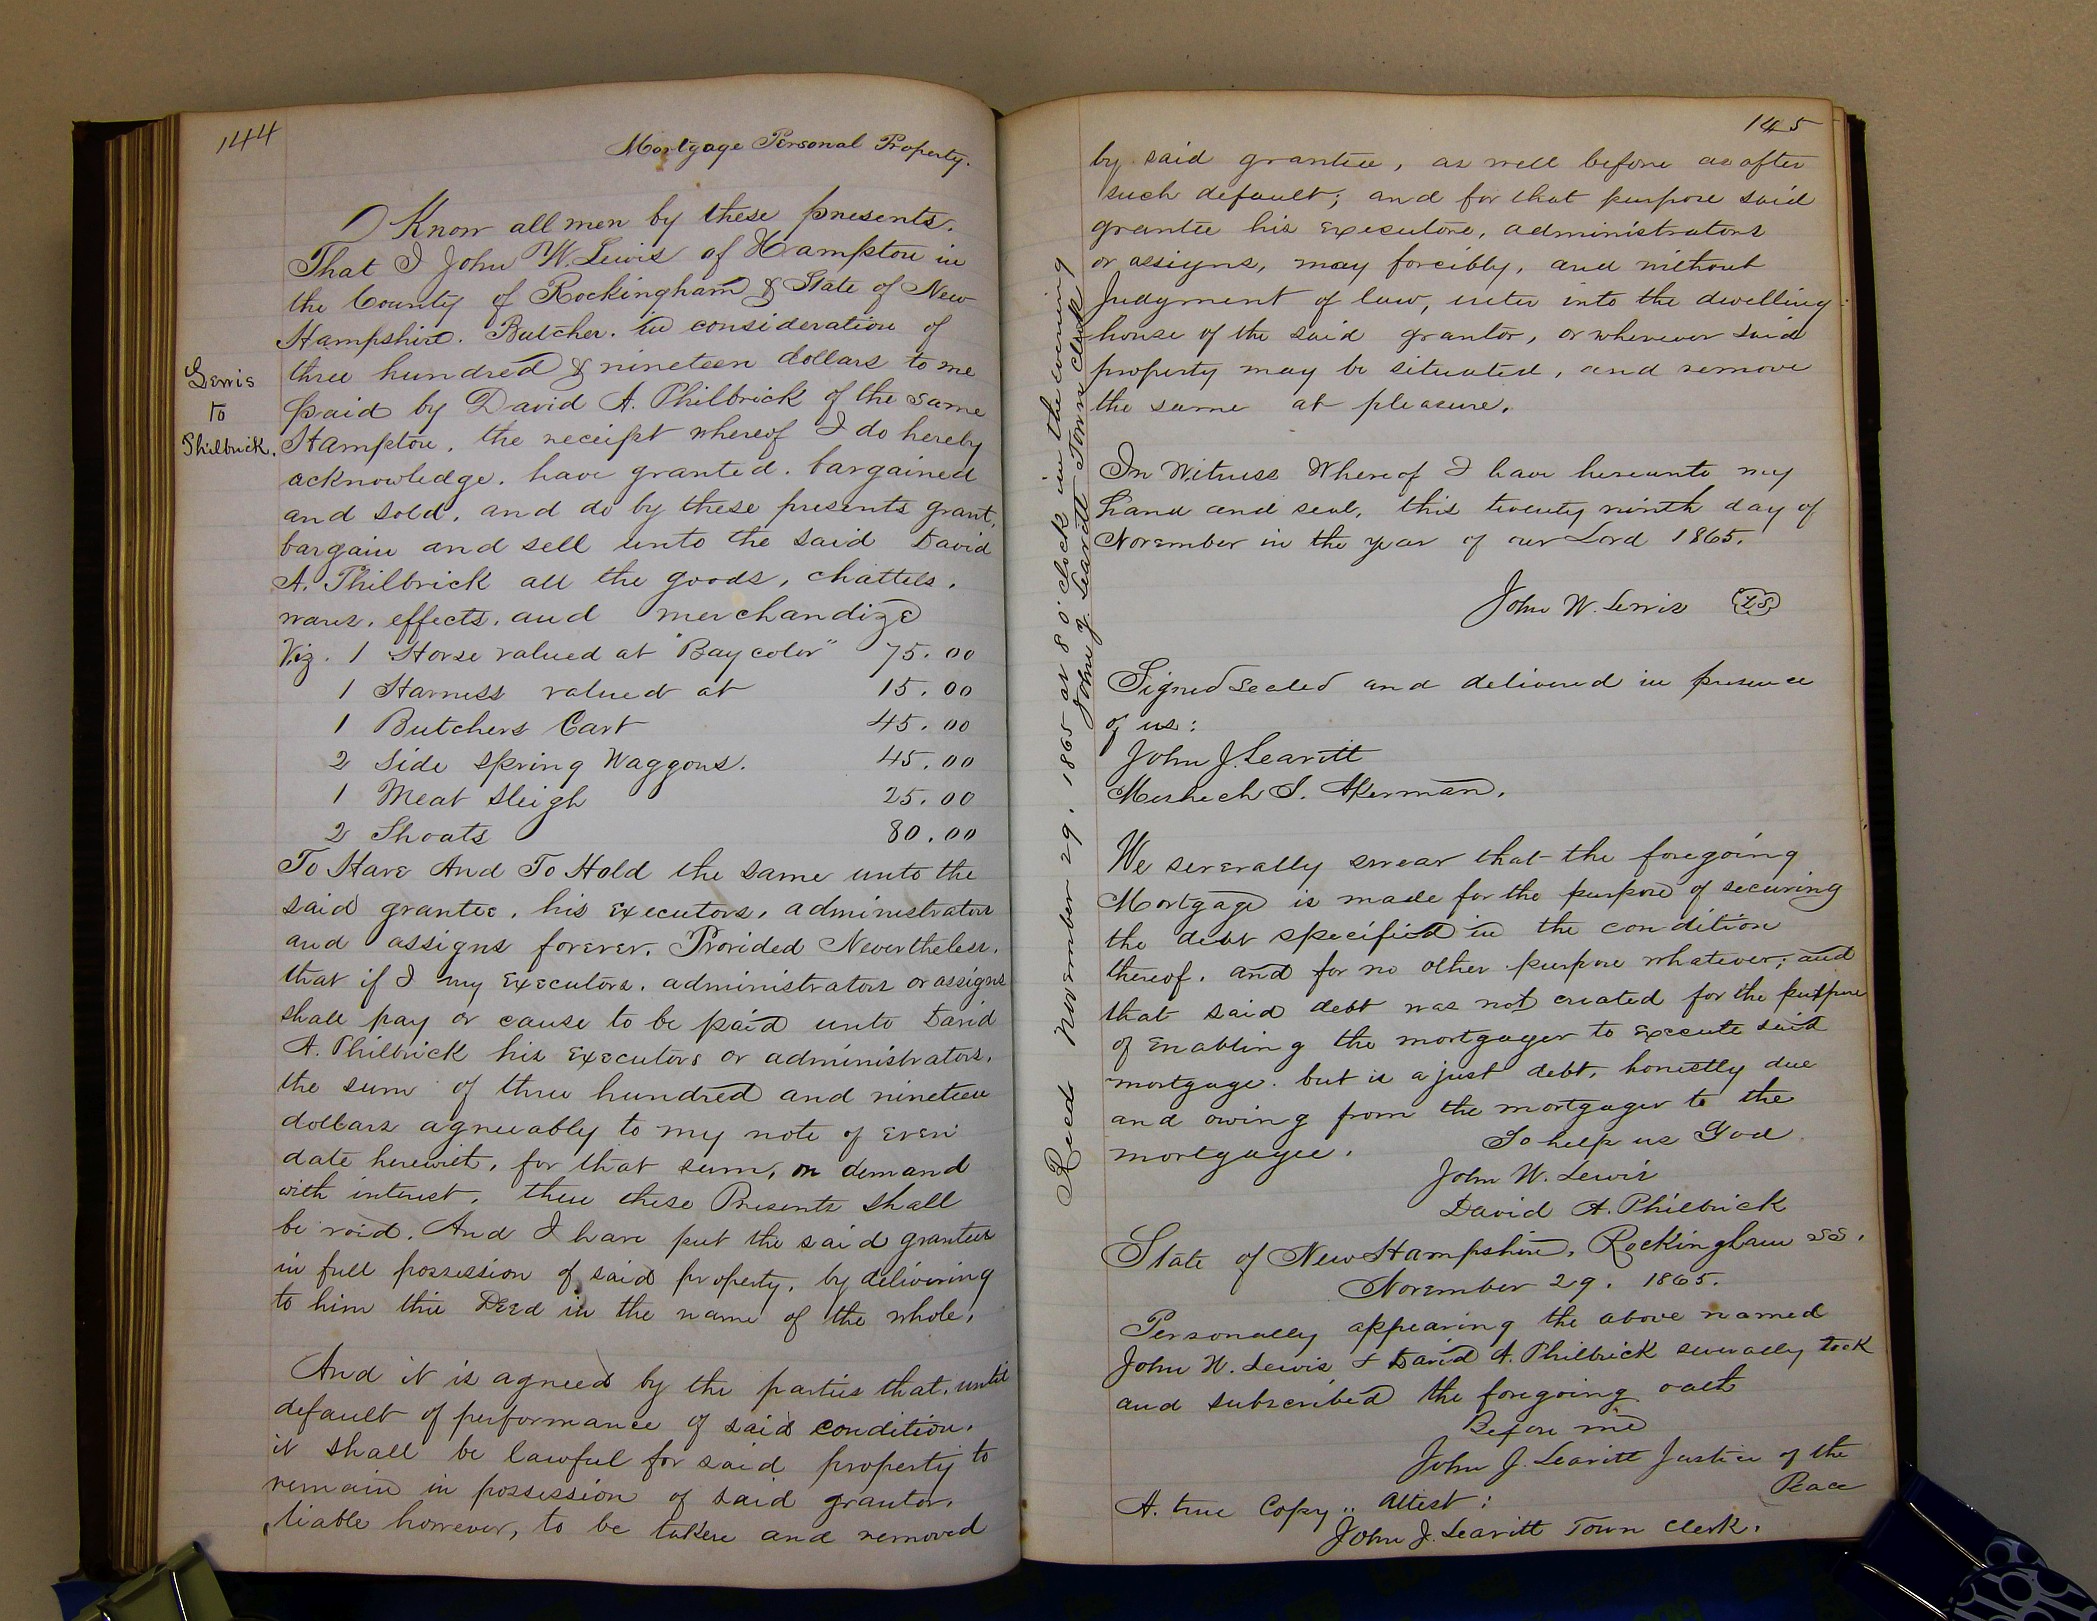 144
Mortgage Personal Property.
Know all men by these presents.
That I John W. Lewis of Hampton in
the County of Rockingham & State of New
Hampshire. Butcher. in consideration of
three hundred & nineteen dollars to me
paid by David A. Philbrick of the same
Hampton, the receipt whereof I do hereby
acknowledge, have granted. bargained
and sold, and do by these presents grant,
bargain and sell unto the said David
A. Philbrick all the goods, chattels,
wares, effects, and merchandize
Lewis
to
Philbrick.
Viz. 1 Horse valued at "Bay color" 75.00
1 Harness valued at 15.00
1 Butchers Cart 45.00
2 Side Spring Waggons. 45.00
1 Meat Sleigh 25.00
2 Shoats 80.00
To Have And To Hold the same unto the
said grantee, his executors, administrators
and assigns forever. Provided Nevertheless,
that if I my executors, administrators or assigns
shall pay or cause to be paid unto David
A. Philbrick his executors or administrators,
the sum of three hundred and nineteen
dollars agreeably to my note of even
date herewit, for that sum, on demand
with interest, then these Presents shall
be void. And I have put the said grantee
in full possession of said property, by delivering
to him this Deed in the name of the whole,
And it is agreed by the parties that, until
default of performance of said condition,
it shall be lawful for said property to
remain in possession of said grantor,
liable however, to be taken and removed
145
by said grantee, as well before as after
such default; and for that purpose said
grantee his executors, administrators
or assigns, may forcibly, and without
Judgment of law, enter into the dwelling
house of the said grantor, or wherever said
property may be situated, and remove
the same at pleasure.
In Witness Whereof I have hereunto my
hand and seal, this twenty ninth day of
November in the year of our Lord 1865.
John W. Lewis LS
Signed Sealed and delivered in presence
of us:
John J. Leavitt
Meshech S. Akerman.
We severally swear that the foregoing
Mortgage is made for the purpose of securing
the debt specified in the condition
thereof, and for no other purpose whatever; and
that said debt was not created for the purpose
of enabling the mortgager to execute said
mortgage. but is a just debt, honestly due
and owing from the mortgager to the
mortgagee. So help us God
John W. Lewis
David A. Philbrick
State of New Hampshire, Rockingham SS.
November 29. 1865.
Personally appearing the above named
John W. Lewis & David A. Philbrick severally took
and subscribed the foregoing oath
Before me
John J. Leavitt Justice of the
Peace
A. true Copy,, Attest:
John J. Leavitt Town Clerk.
Recd November 29. 1865 at 8 o'clock in the evening
John J. Leavitt Town Clerk